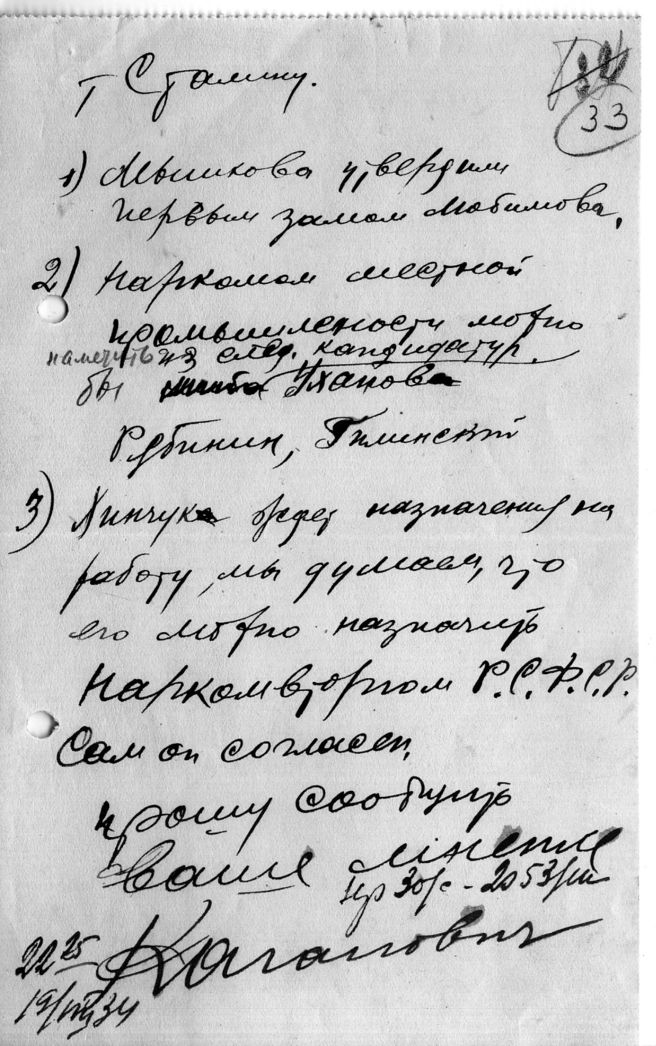 33
т Сталину.
1) Мышкова утвердили
первым замом Любимова.
2) Наркомом местной
промышлености можно
наметить из след. кандидатур.
бы Уханов
Рубинин, Гилинский
3) Хинчук ждет назначения на
работу, мы думаем, что
его можно назначить
Наркомвторгом Р.С.Ф.С.Р.
Сам он согласен,
прошу сообщить
Ваше мнение
Каганович
22 25
19/VIII 34